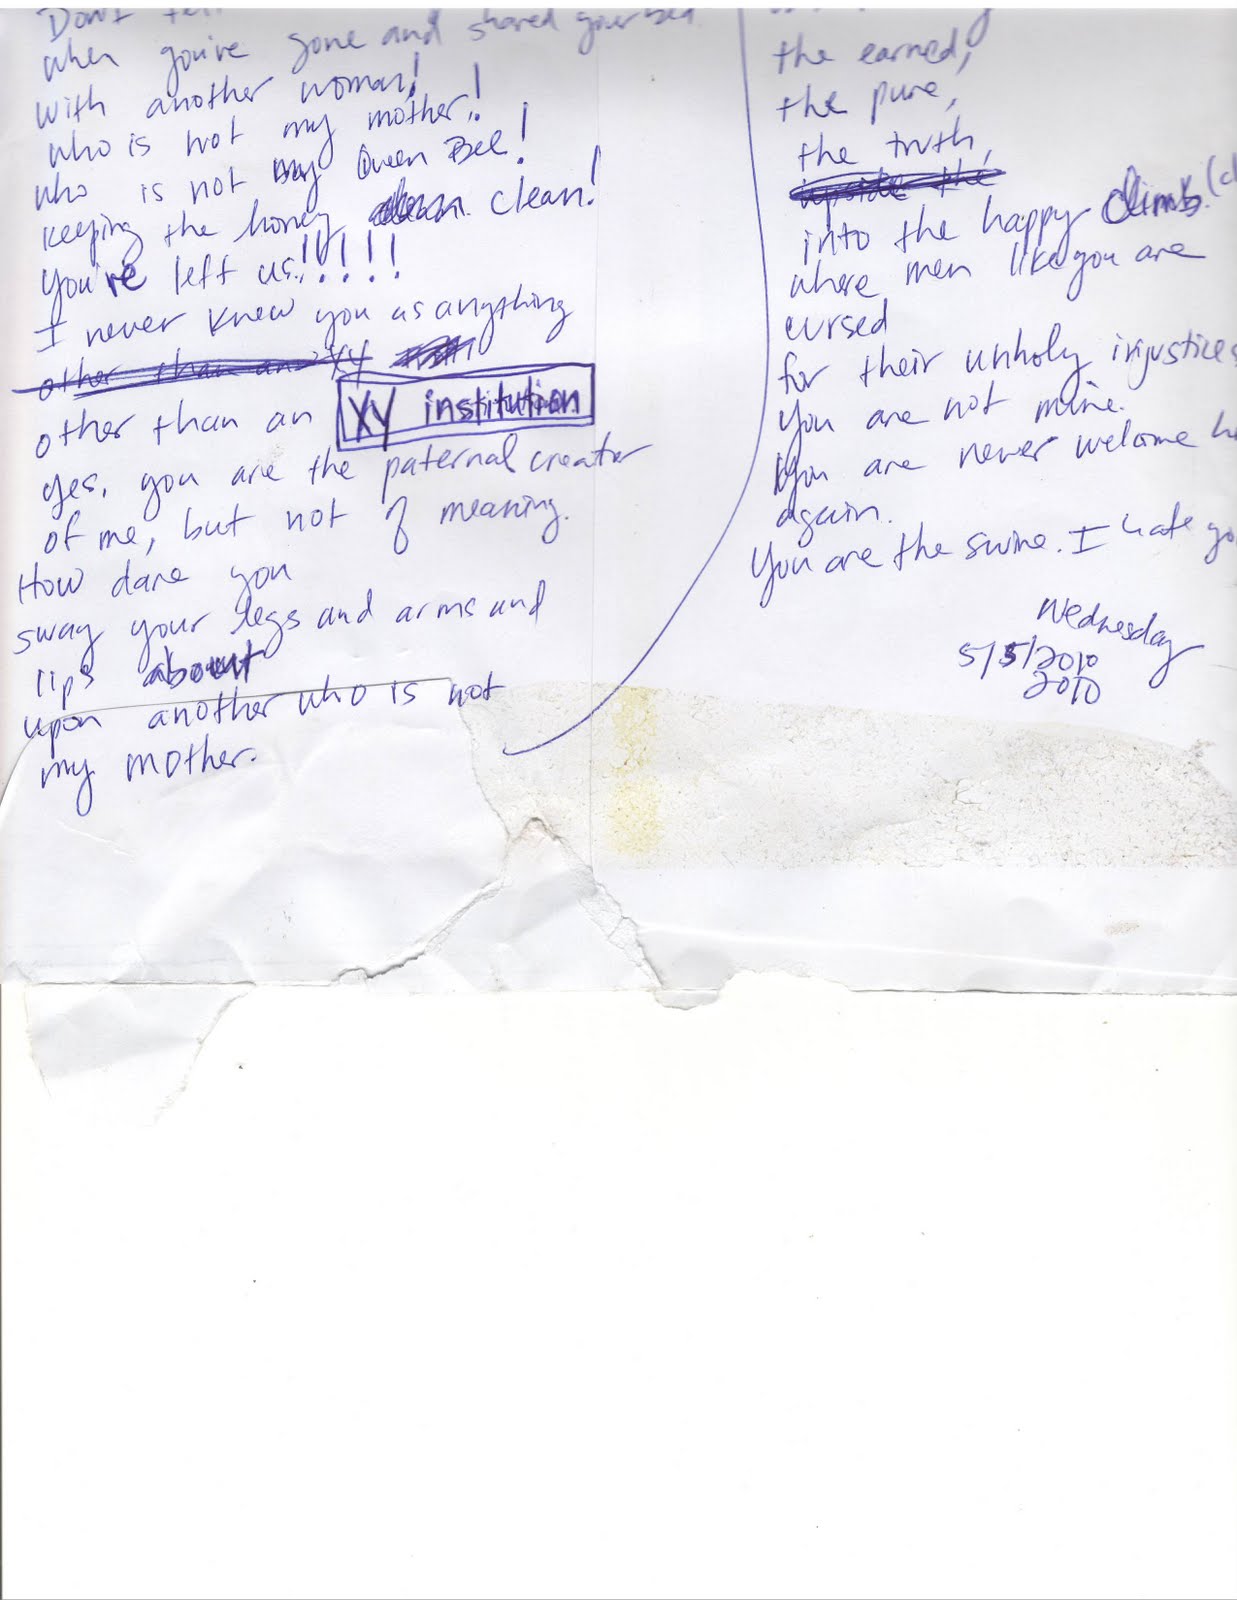 Don't tell
when you've gone and shared your bed
with another woman!
who is not my mother!!
who is not my Queen Bee!
keeping the honey clean!
you've left us!!!!!
I never knew you as anything
other than an XY
other than an XY institution
yes, you are the paternal creator
of me, but not of meaning.
How dare you
sway your legs and arms and
lips about
upon another who is not
my mother.
the earned,
the pure,
the truth,
upside the
into the happy climb.
where men like you are
cursed
for their unholy injustices
you are not mine.
you are never welcome
again.
You are the swine. I hate
Wednesday
5/5/2010
2010